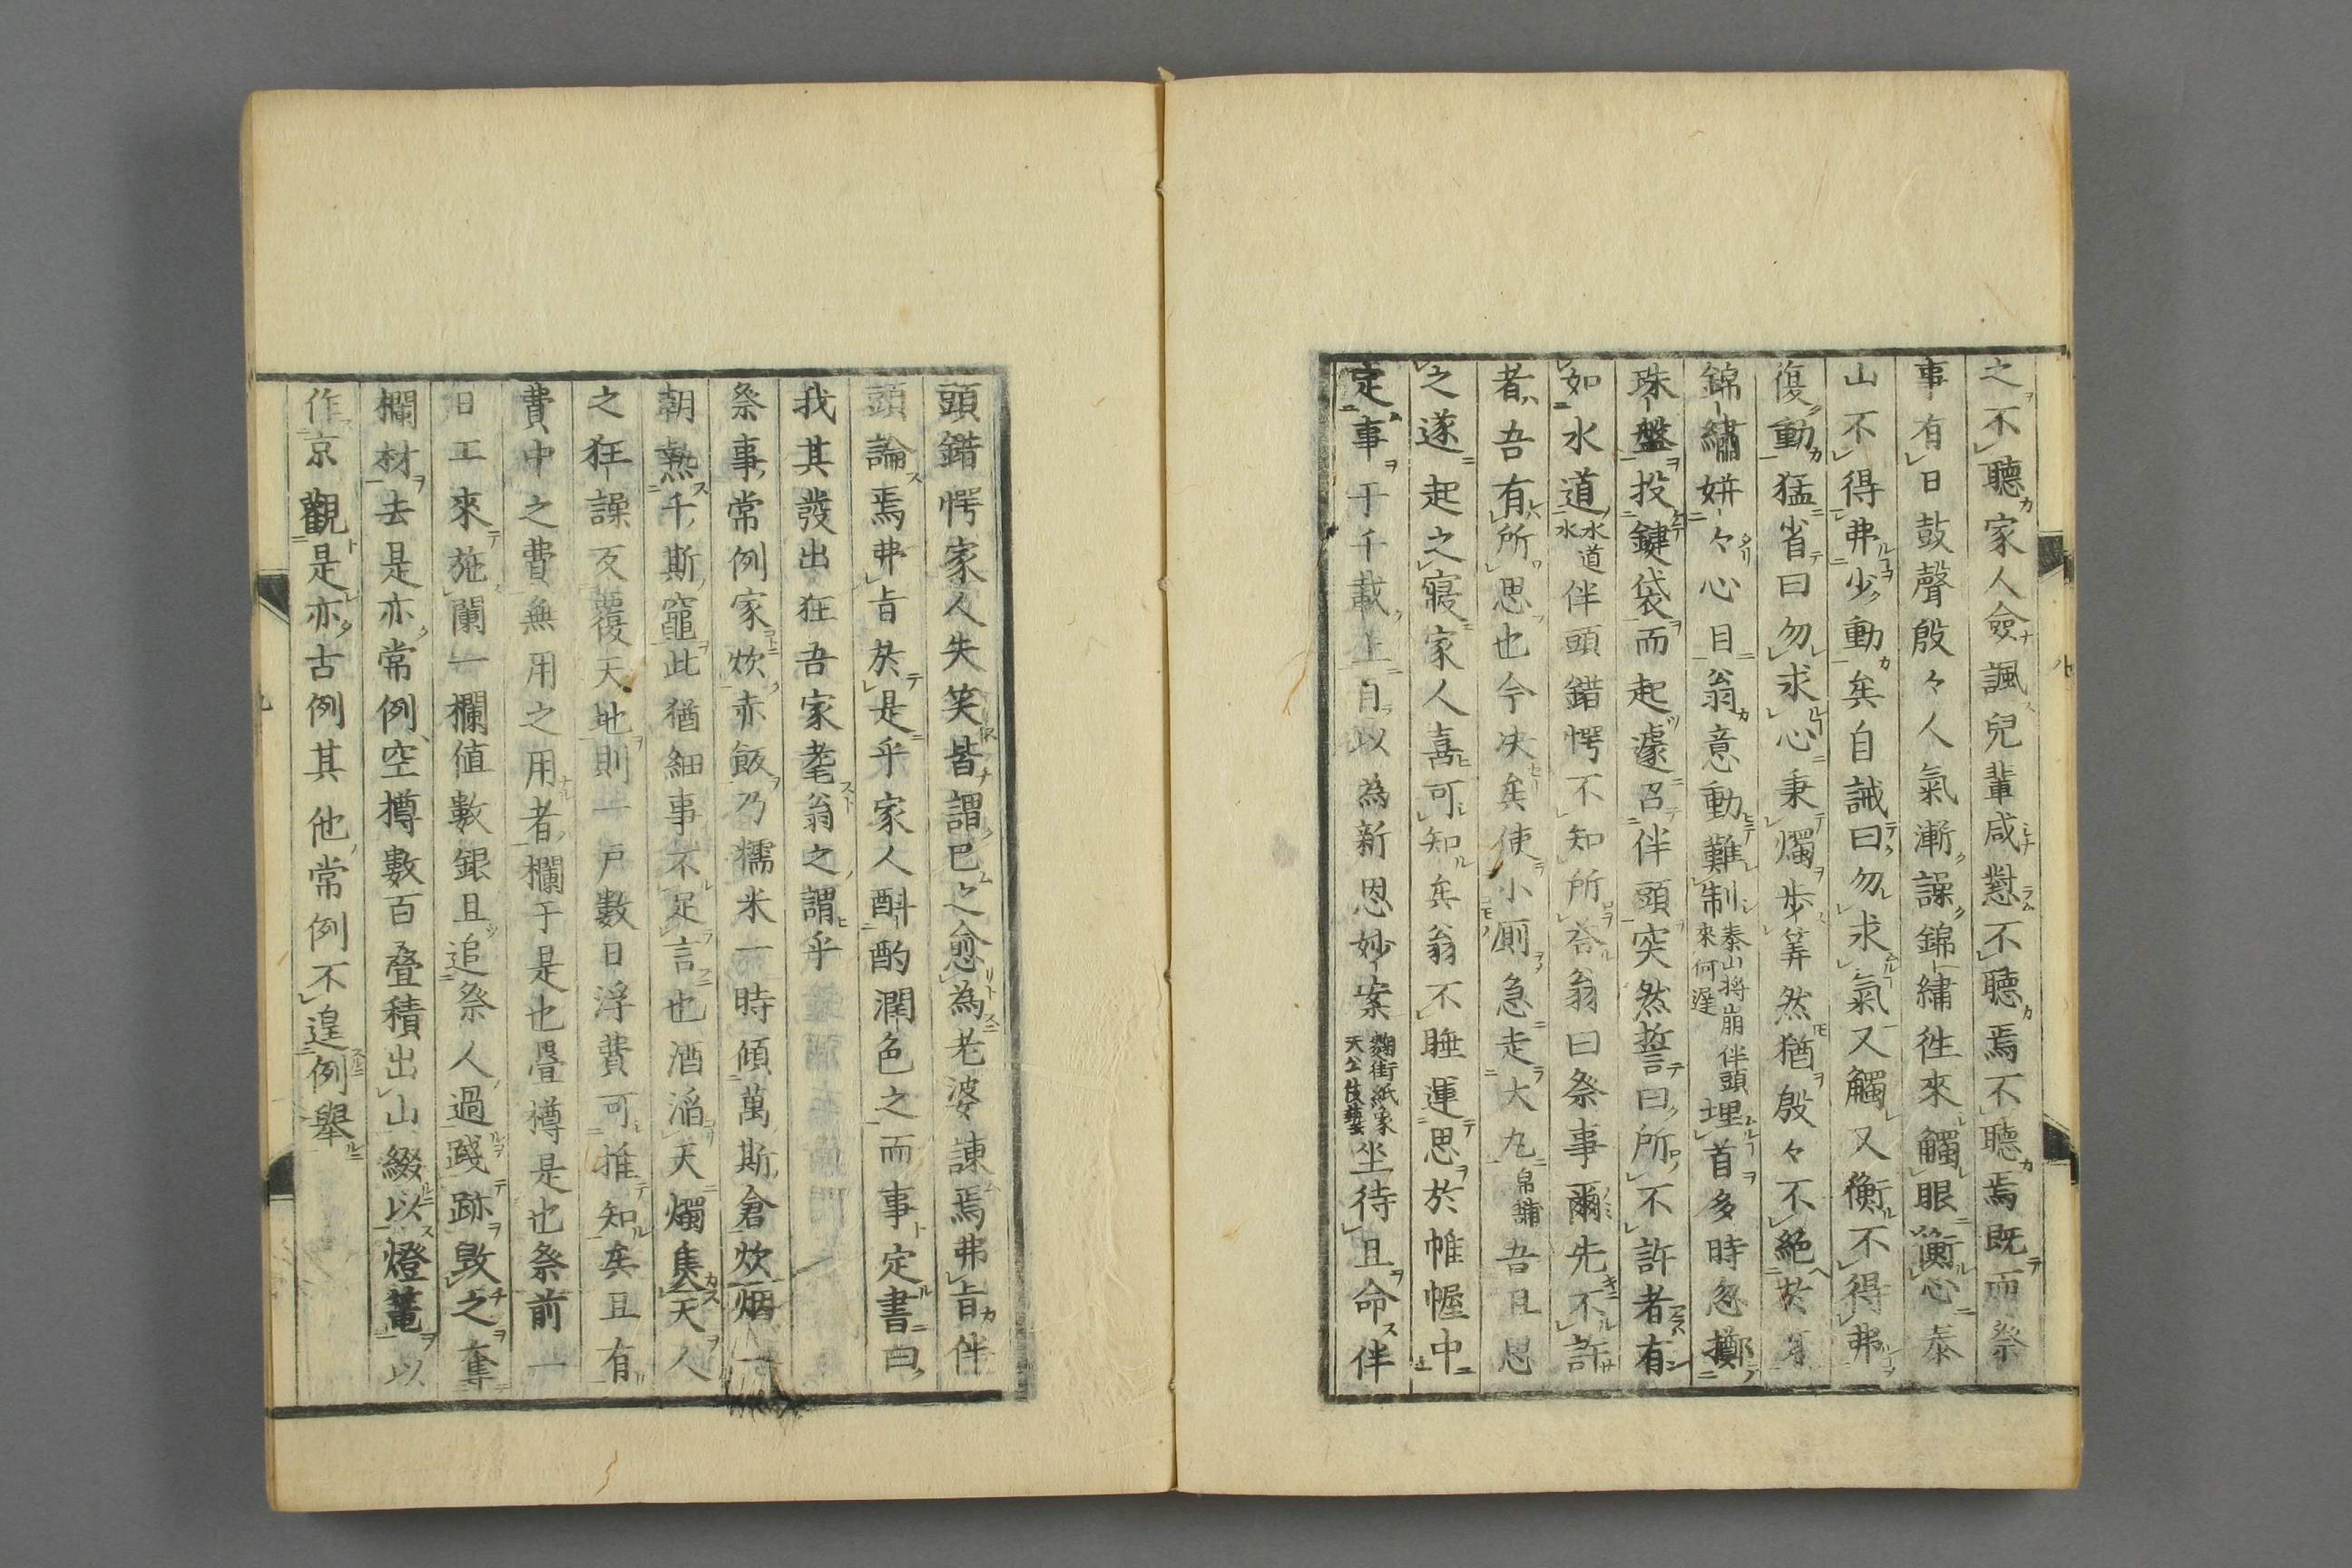 之不聽家人僉諷兒輩咸懟不聽焉不聽焉既而祭
事有日鼓聲殷々人氣漸譟錦繡徃來觸眼衡心泰
山不得弗少動矣自誡曰勿求氣又觸又衡不得弗
復動猛省曰勿求心秉燭歩筭然猶殷々不絕於耳
錦繡姸々心目翁意動難制泰山將崩伴頭埋首多時忽擲
來何遲
珠盤投鍵袋而起遽召伴頭突然誓曰所不許者有
如水道水道伴頭錯愕不知所答翁曰祭事爾先不許
水
者吾有所思也今决矣使小厠急走大丸帛鋪吾且思
之遂起之寢家人喜可知矣翁不睡運思於帷幄中
定事于千載上自以為新恩妙案麴街紙象坐待且命伴
天公伎藝
頭錯愕家人失笑皆謂巳之愈為老婆諌焉弗旨伴
頭論焉弗旨於是乎家人斟酌潤色之而事定書曰
我其發出狂吾家耄翁之謂乎
祭事常例家炊赤飯乃糯米一時傾萬斯倉炊烟一
朝熱千斯竈此猶細事不足言也酒滔天燭焦天人
之狂譟反覆天地則一戸數日浮費可推知矣且有
費中之費無用之用者欄于是也疊樽是也祭前一
日工來施闌一欄値數銀且追祭人過踐跡毁之奪
欄材去是亦常例空樽數百叠積出山綴以燈篭以
作京觀是亦古例其他常例不遑例舉